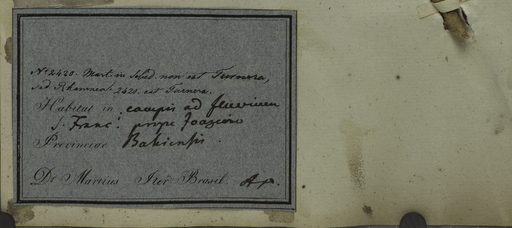 No 2420. Mart. in Sched. non est Turnera,
sed Rhamnea. 2420. est Turnera.
Habitat in campis ad fluvium
S. Franc. prope Joazeiro
Provinciae Bahiensis.
Dr Martius Iter Brasil. Ap.